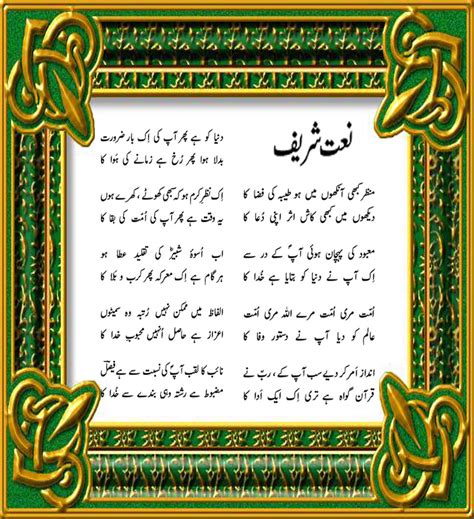 نعت شریف
منظر کبھی آنکھوں میں ہو طیبہ کی فضا کا
دیکھوں میں کبھی کاش اثر اپنی دُعا کا
معبود کی پہچان ہوئی آپؐ کے در سے
اِک آپ نے دنیا کو بتایا ہے خُدا کا
اُمت مری اُمت مرے اللہ مری اُمت
عالم کو دیا آپ نے دستور وفا کا
انداز اَمر کر دیے سب آپ کے، ربّ نے
قرآن گواہ ہے تری اِک ایک اَدا کا
دنیا کو ہے پھر آپ کی اِک بار ضرورت
بدلا ہوا پھر رُخ ہے زمانے کی ہوا کا
اِک نظرِ کرم ہو کہ سبھی کھوٹے، کھرے ہوں
یہ وقت ہے پھر آپ کی اُمت کی بقا کا
اب اُسوۂ شبیرؓ کی تقلید عطا ہو
ہر گام ہے اِک معرکہ پھر کرب و بلا کا
الفاظ میں ممکن نہیں رُتبہ وہ سمیٹوں
اعزاز ہے حاصل اُنہیں محبوب خدا کا
نائب کا لقب آپ کی نسبت سے ہے فیصلؔ
مضبوط ہے رشتہ وہی بندے سے خُدا کا